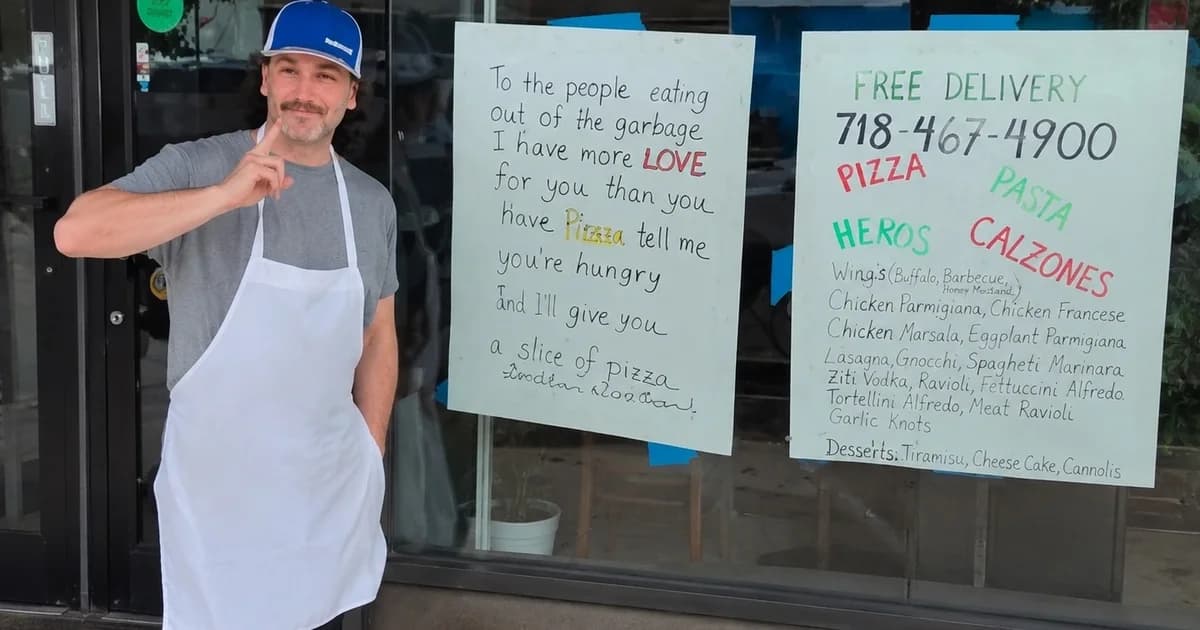 PULL
To the people eating
out of the garbage
I have more LOVE
for you than you
have Pizza tell me
you're hungry
and I'll give you
a slice of pizza
FREE DELIVERY
718-467-4900
PIZZA
PASTA
HEROS
CALZONES
Wing's (Buffalo, Barbecue,
Honey Mustand.)
Chicken Parmigiana, Chicken Francese
Chicken Marsala, Eggplant Parmigiana
Lasagna, Gnocchi, Spagheti Marinara
Ziti Vodka, Ravioli, Fettuccini Alfredo.
Tortellini Alfredo, Meat Ravioli
Garlic Knots
Desserts: Tiramisu, Cheese Cake, Cannolis